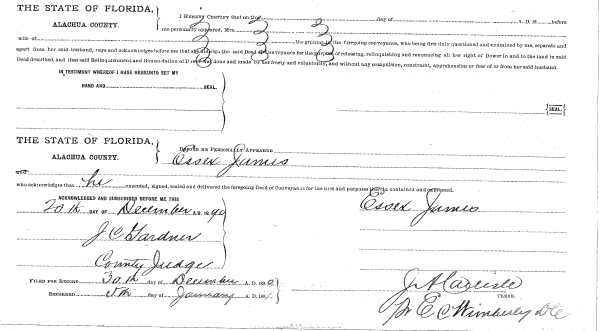 THE STATE OF FLORIDA,
ALACHUA COUNTY.
I HEREBY CERTIFY that on the day of A. D. 18 before
me personally appeared, Mrs.
wife of the grantor in the foregoing conveyance, who being first duly questioned and examined by me, separate and
apart from her said husband, says and acknowledges before me that she did sign the said Deed of Conveyance for the purpose of releasing, relinquishing and renouncing all her right of Dower in and to the land in said
Deed described, and that said Relinquishment and Renunciation of Dower was done and made by her freely and voluntarily, and without any compulsion, constraint, apprehension or fear of or from her said husband.
IN TESTIMONY WHEREOF I HAVE HEREUNTO SET MY
HAND AND SEAL.
SEAL.
THE STATE OF FLORIDA,
ALACHUA COUNTY.
BEFORE ME PERSONALLY APPEARED
Essex James
and
who acknowledges that he executed, signed, sealed and delivered the foregoing Deed of Conveyance for the uses and purposes therein contained and expressed.
ACKNOWLEDGED AND SUBSCRIBED BEFORE ME THIS
20th DAY OF December A.D. 1890
Essex James
J C Gardner
County Judge
FILED FOR RECORD 30th day of December A. D. 1890
RECORDED 5th day of January A. D. 1891
J A Carlisle
CLERK.
Pr E C Wimberly DC